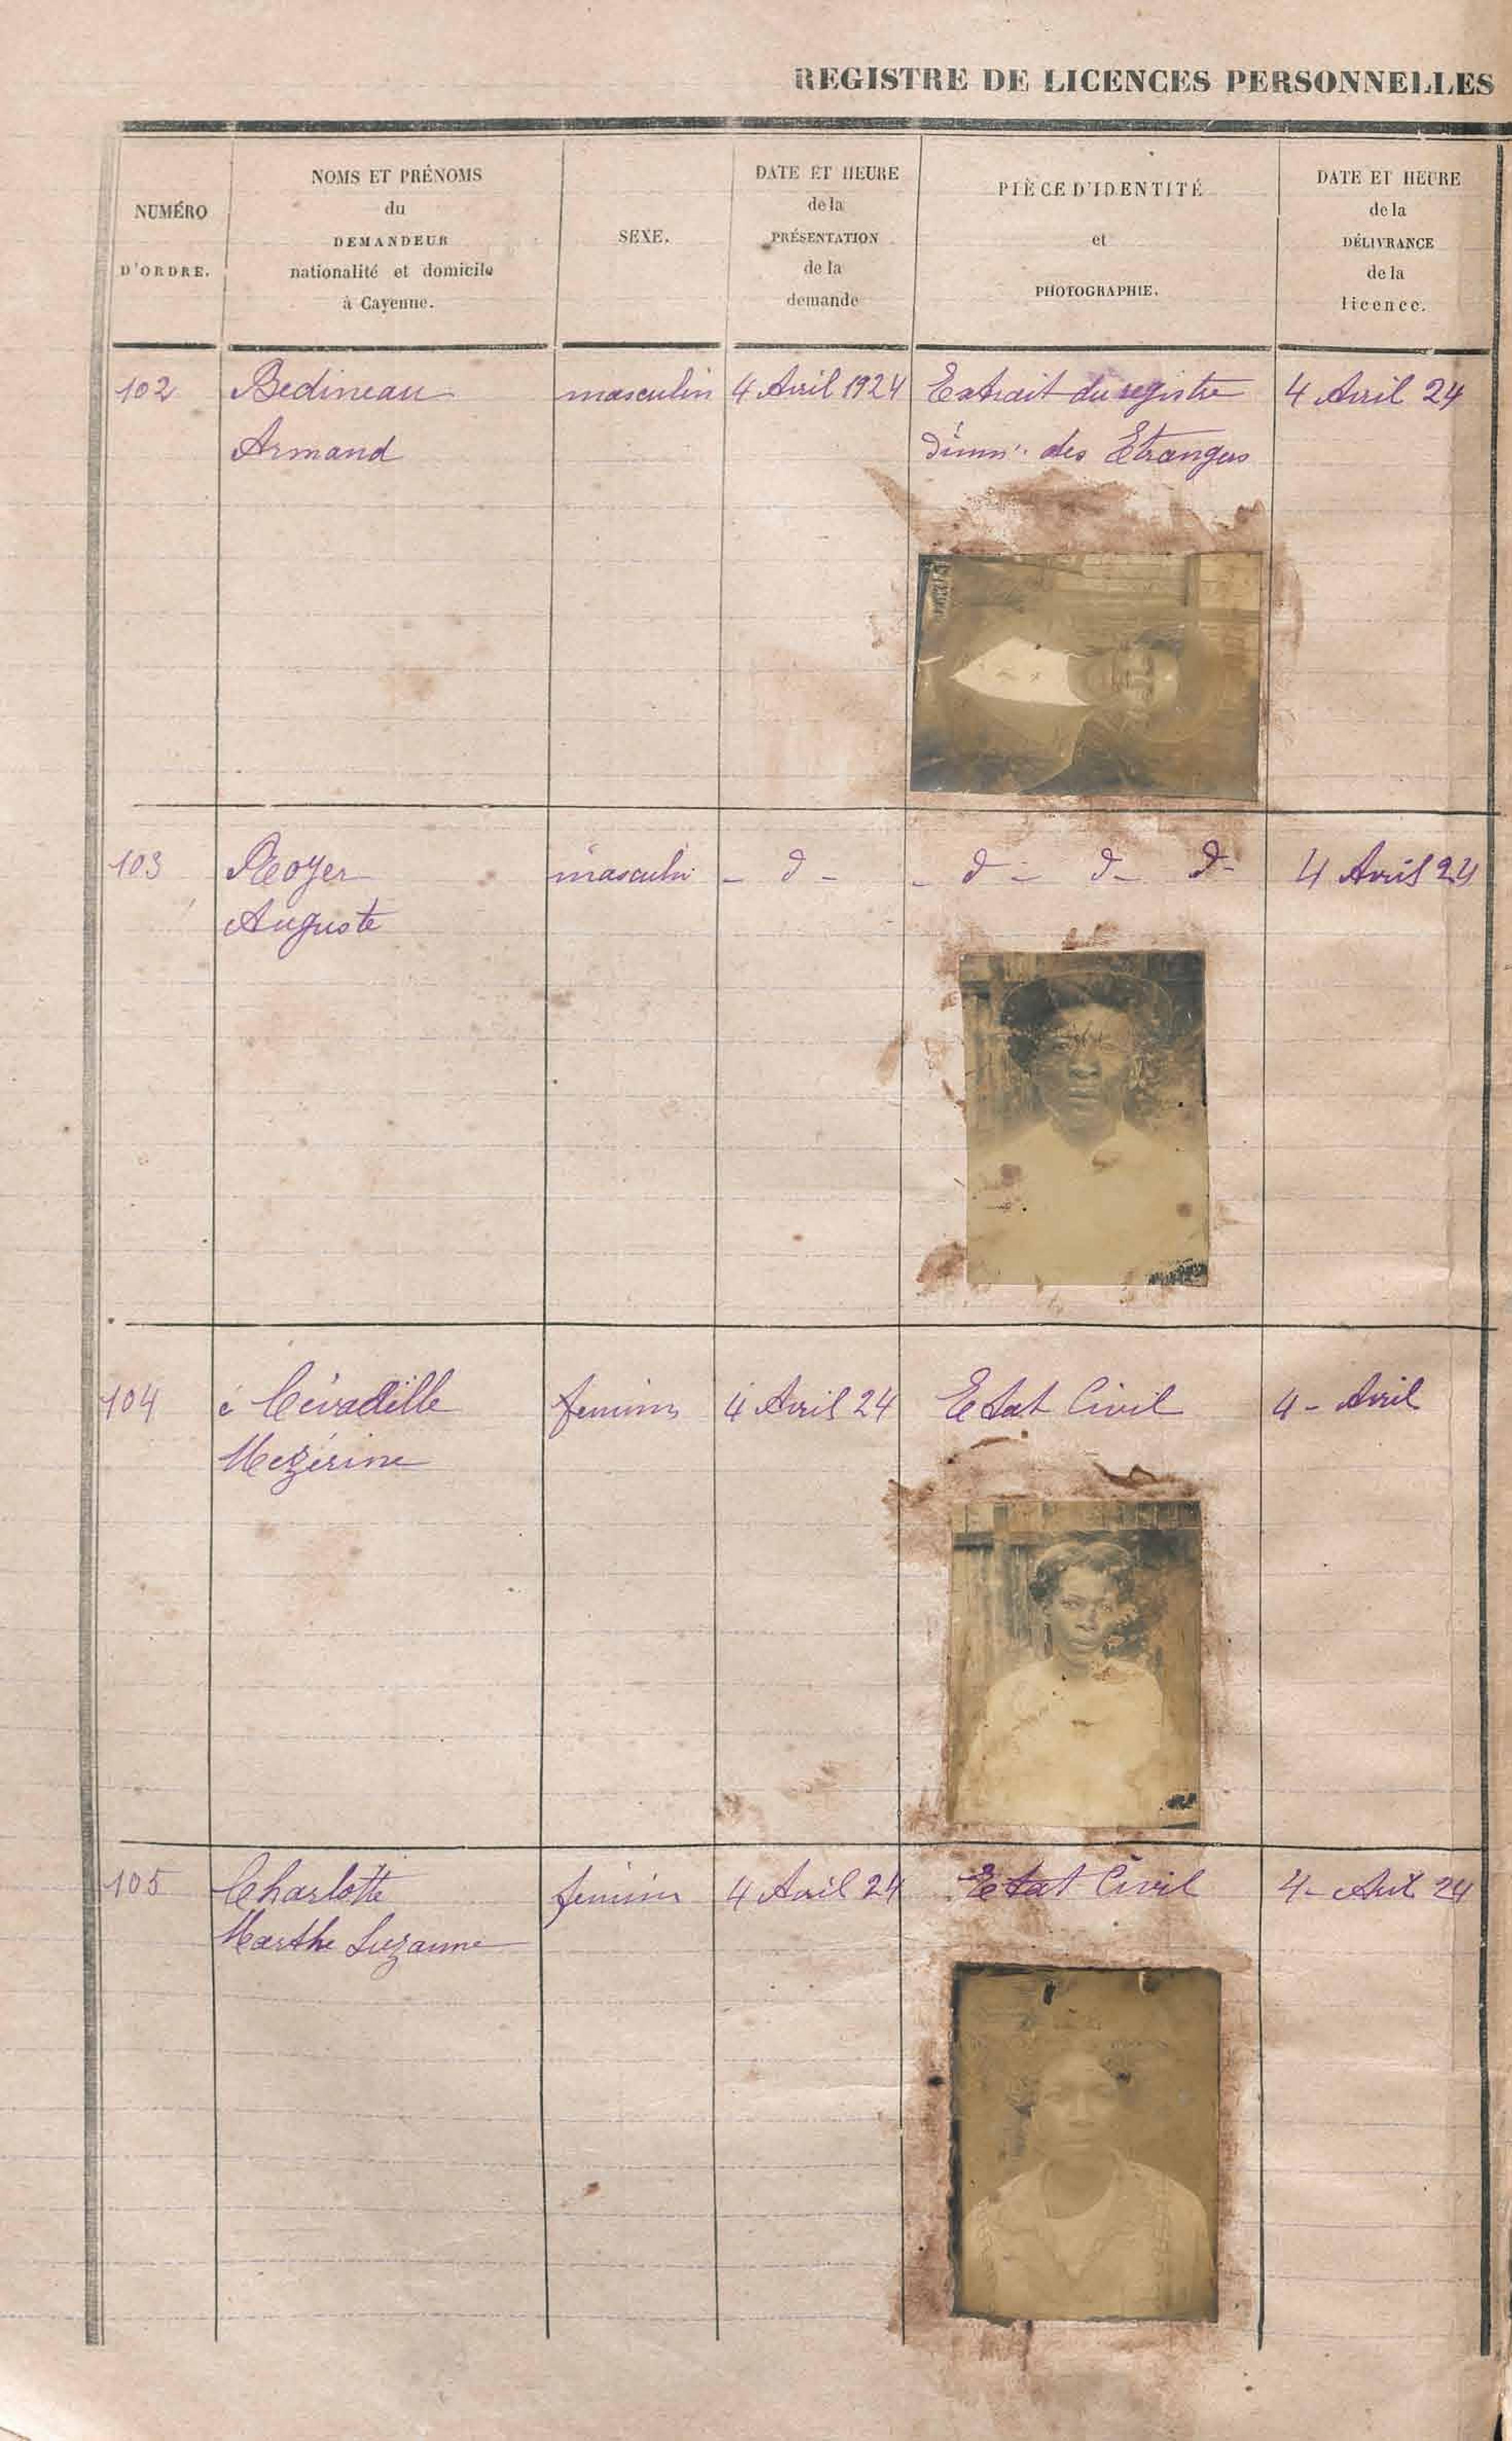 REGISTRE DE LICENCES PERSONNELLES
NUMÉRO
D'ORDRE.
NOMS ET PRÉNOMS
du
DEMANDEUR
nationalité et domicile
à Cayenne.
SEXE.
DATE ET HEURE
de la
PRÉSENTATION
de la
demande
PIÈCE D'IDENTITÉ
et
PHOTOGRAPHIE.
DATE ET HEURE
de la
DÉLIVRANCE
de la
licence.
102
Bedineau
Armand
masculin
4 Avril 1924
Extrait du registre
d'imm. des Etrangers
4 Avril 24
103
Royer
Auguste
masculin
- d -
- d - d - d -
4 Avril 24
104
Mezérine
feminin
4 Avril 24
Etat Civil
4 - Avril
105
Charlotte
Marthe Suzanne
feminin
4 Avril 24
Etat Civil
4 - Avril 24